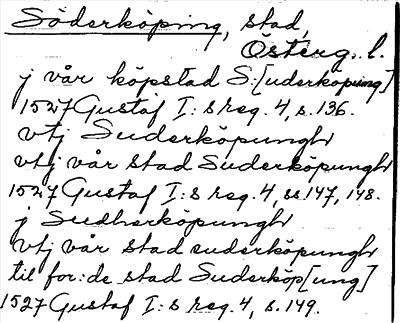 Söderköping, stad,
Österg. l.
j vår köpstad S:[uderköping]
1527 Gustaf I:s reg. 4, s. 136.
vtj Suderköpungh
vtj vår stad Suderköpungh
1527 Gustaf I:s reg. 4, ss 147, 148.
j Sudherköpungh
vtj vår stad suderköpungh
til for:de stad Suderköp[ung]
1527 Gustaf I:s reg. 4, s. 149.